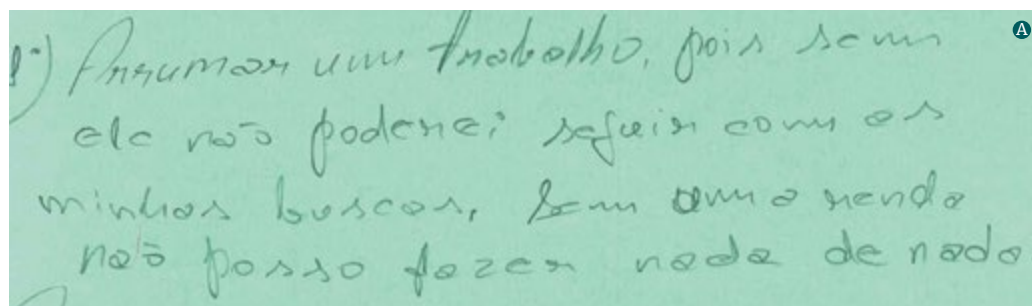 1º) Arrumar um trabalho, pois sem
ele não poderei seguir com as
minhas buscas, Sem uma renda
não posso fazer nada de nada
A